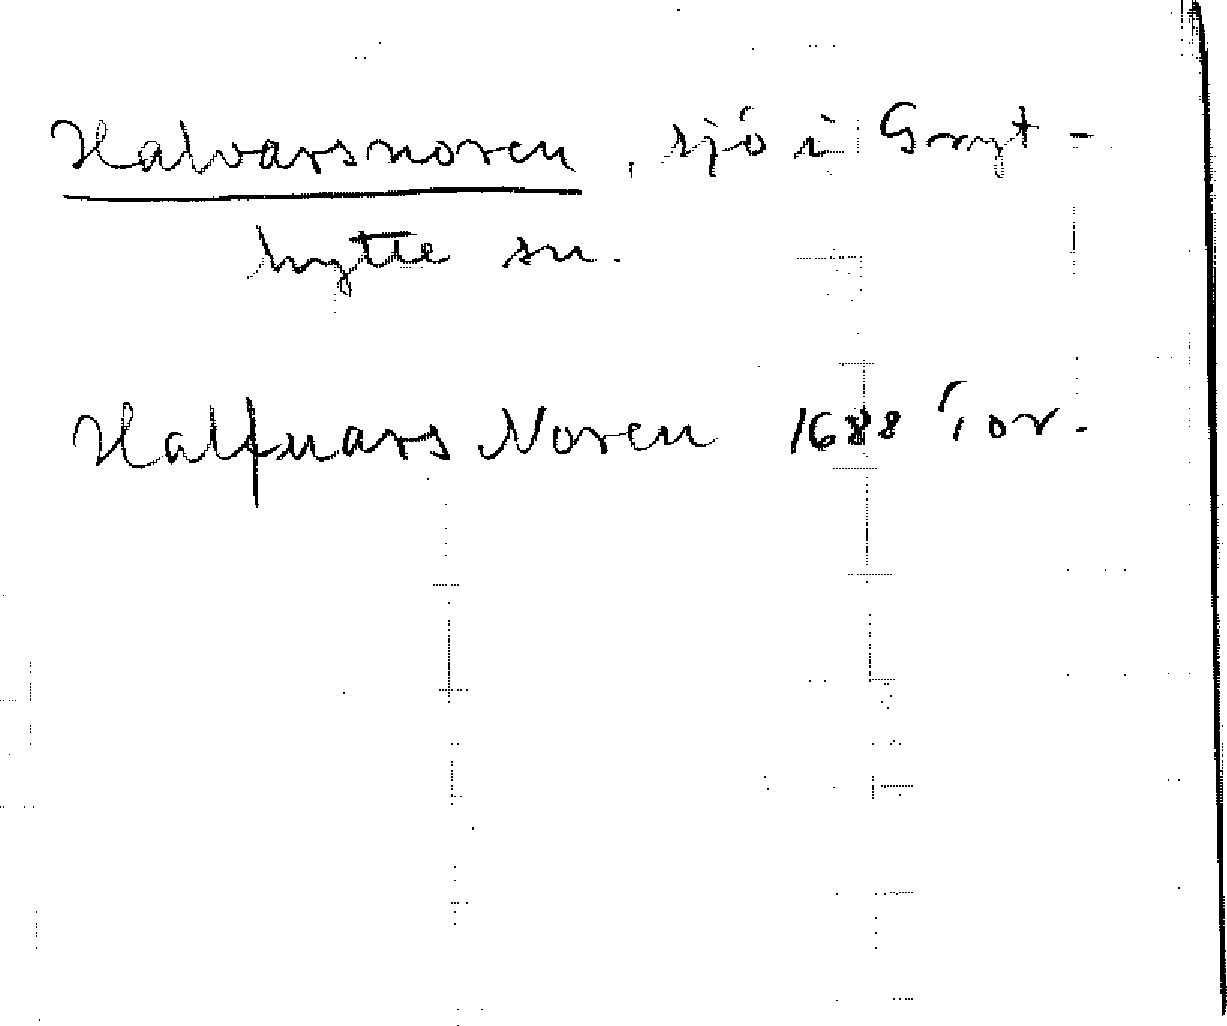 Halvarsnoren, sjö i Gryt-
hytte sn.
Halfuars Noren 1688 Tor.